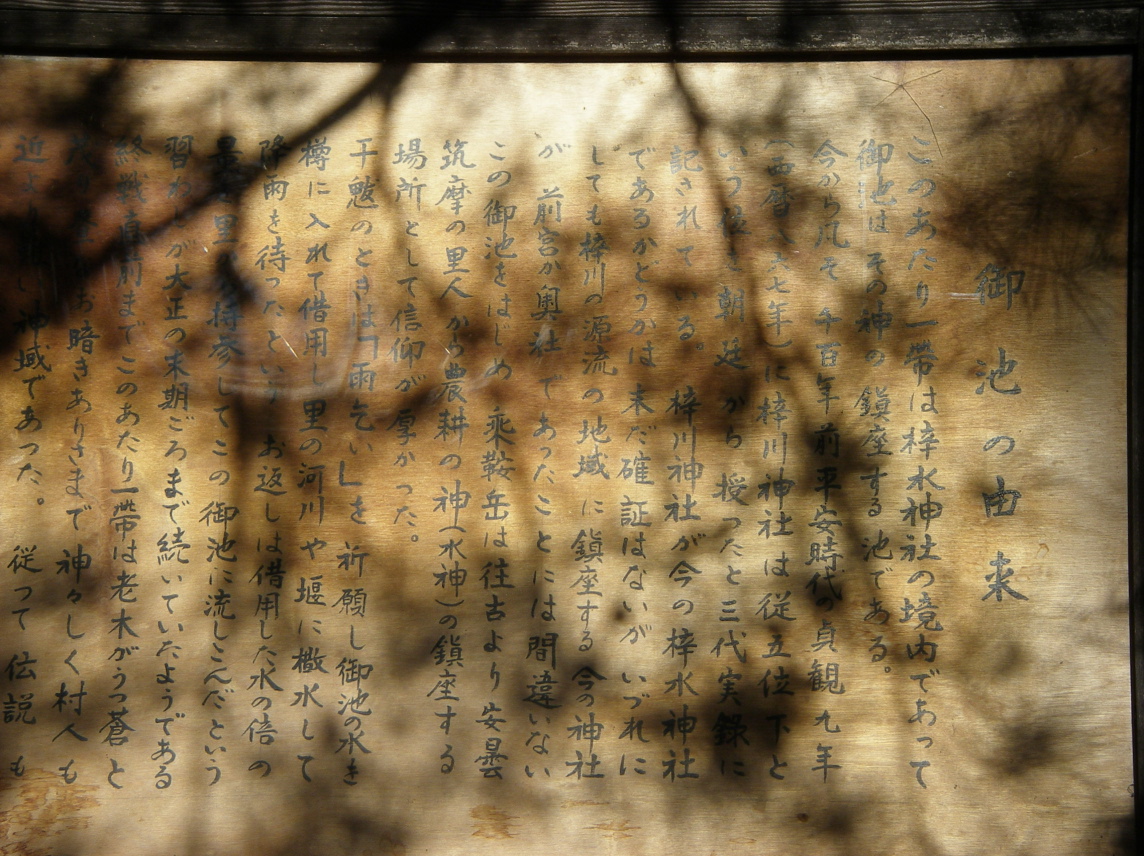 御池の由来
このあたり一帯は梓水神社の境内であって
御池はその神の鎮座する池である。
今から凡そ千百年前平安時代の貞観九年
(西暦八六七年)に梓川神社は従五位下と
いう位を朝廷から授ったと三代実録に
記されている。梓川神社が今の梓水神社
であるかどうかは未だ確証はないがいづれに
しても梓川の源流の地域に鎮座する今の神社
が前宮か奥社であったことには間違いない
この御池をはじめ乗鞍岳は往古より安曇
筑摩の里人から農耕の神(水神)の鎮座する
場所として信仰が厚かった。
干魃のときは「雨乞い」を祈願し御池の水を
樽に入れて借用し里の河川や堰に撒水して
降雨を待ったというお返しは借用した水の倍の
量を里から持参してこの御池に流しこんだという
習わしが大正の末期ごろまで続いていたようである
終戦直前までこのあたり一帯は老木がうっ蒼と
お暗きありさまで神々しく村人も
近より い神域であった。従って伝説も